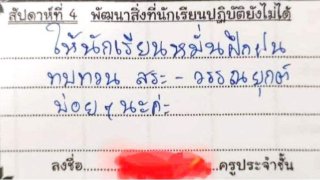 สัปดาห์ที่ 4 พัฒนาสิ่งที่นักเรียนปฏิบัติยังไม่ได้
ให้นักเรียนหมั่นฝึกฝน
ทบทวน สระ - วรรณยุกต์
บ่อยๆ นะค่ะ
ลงชื่อ ครูประจำชั้น